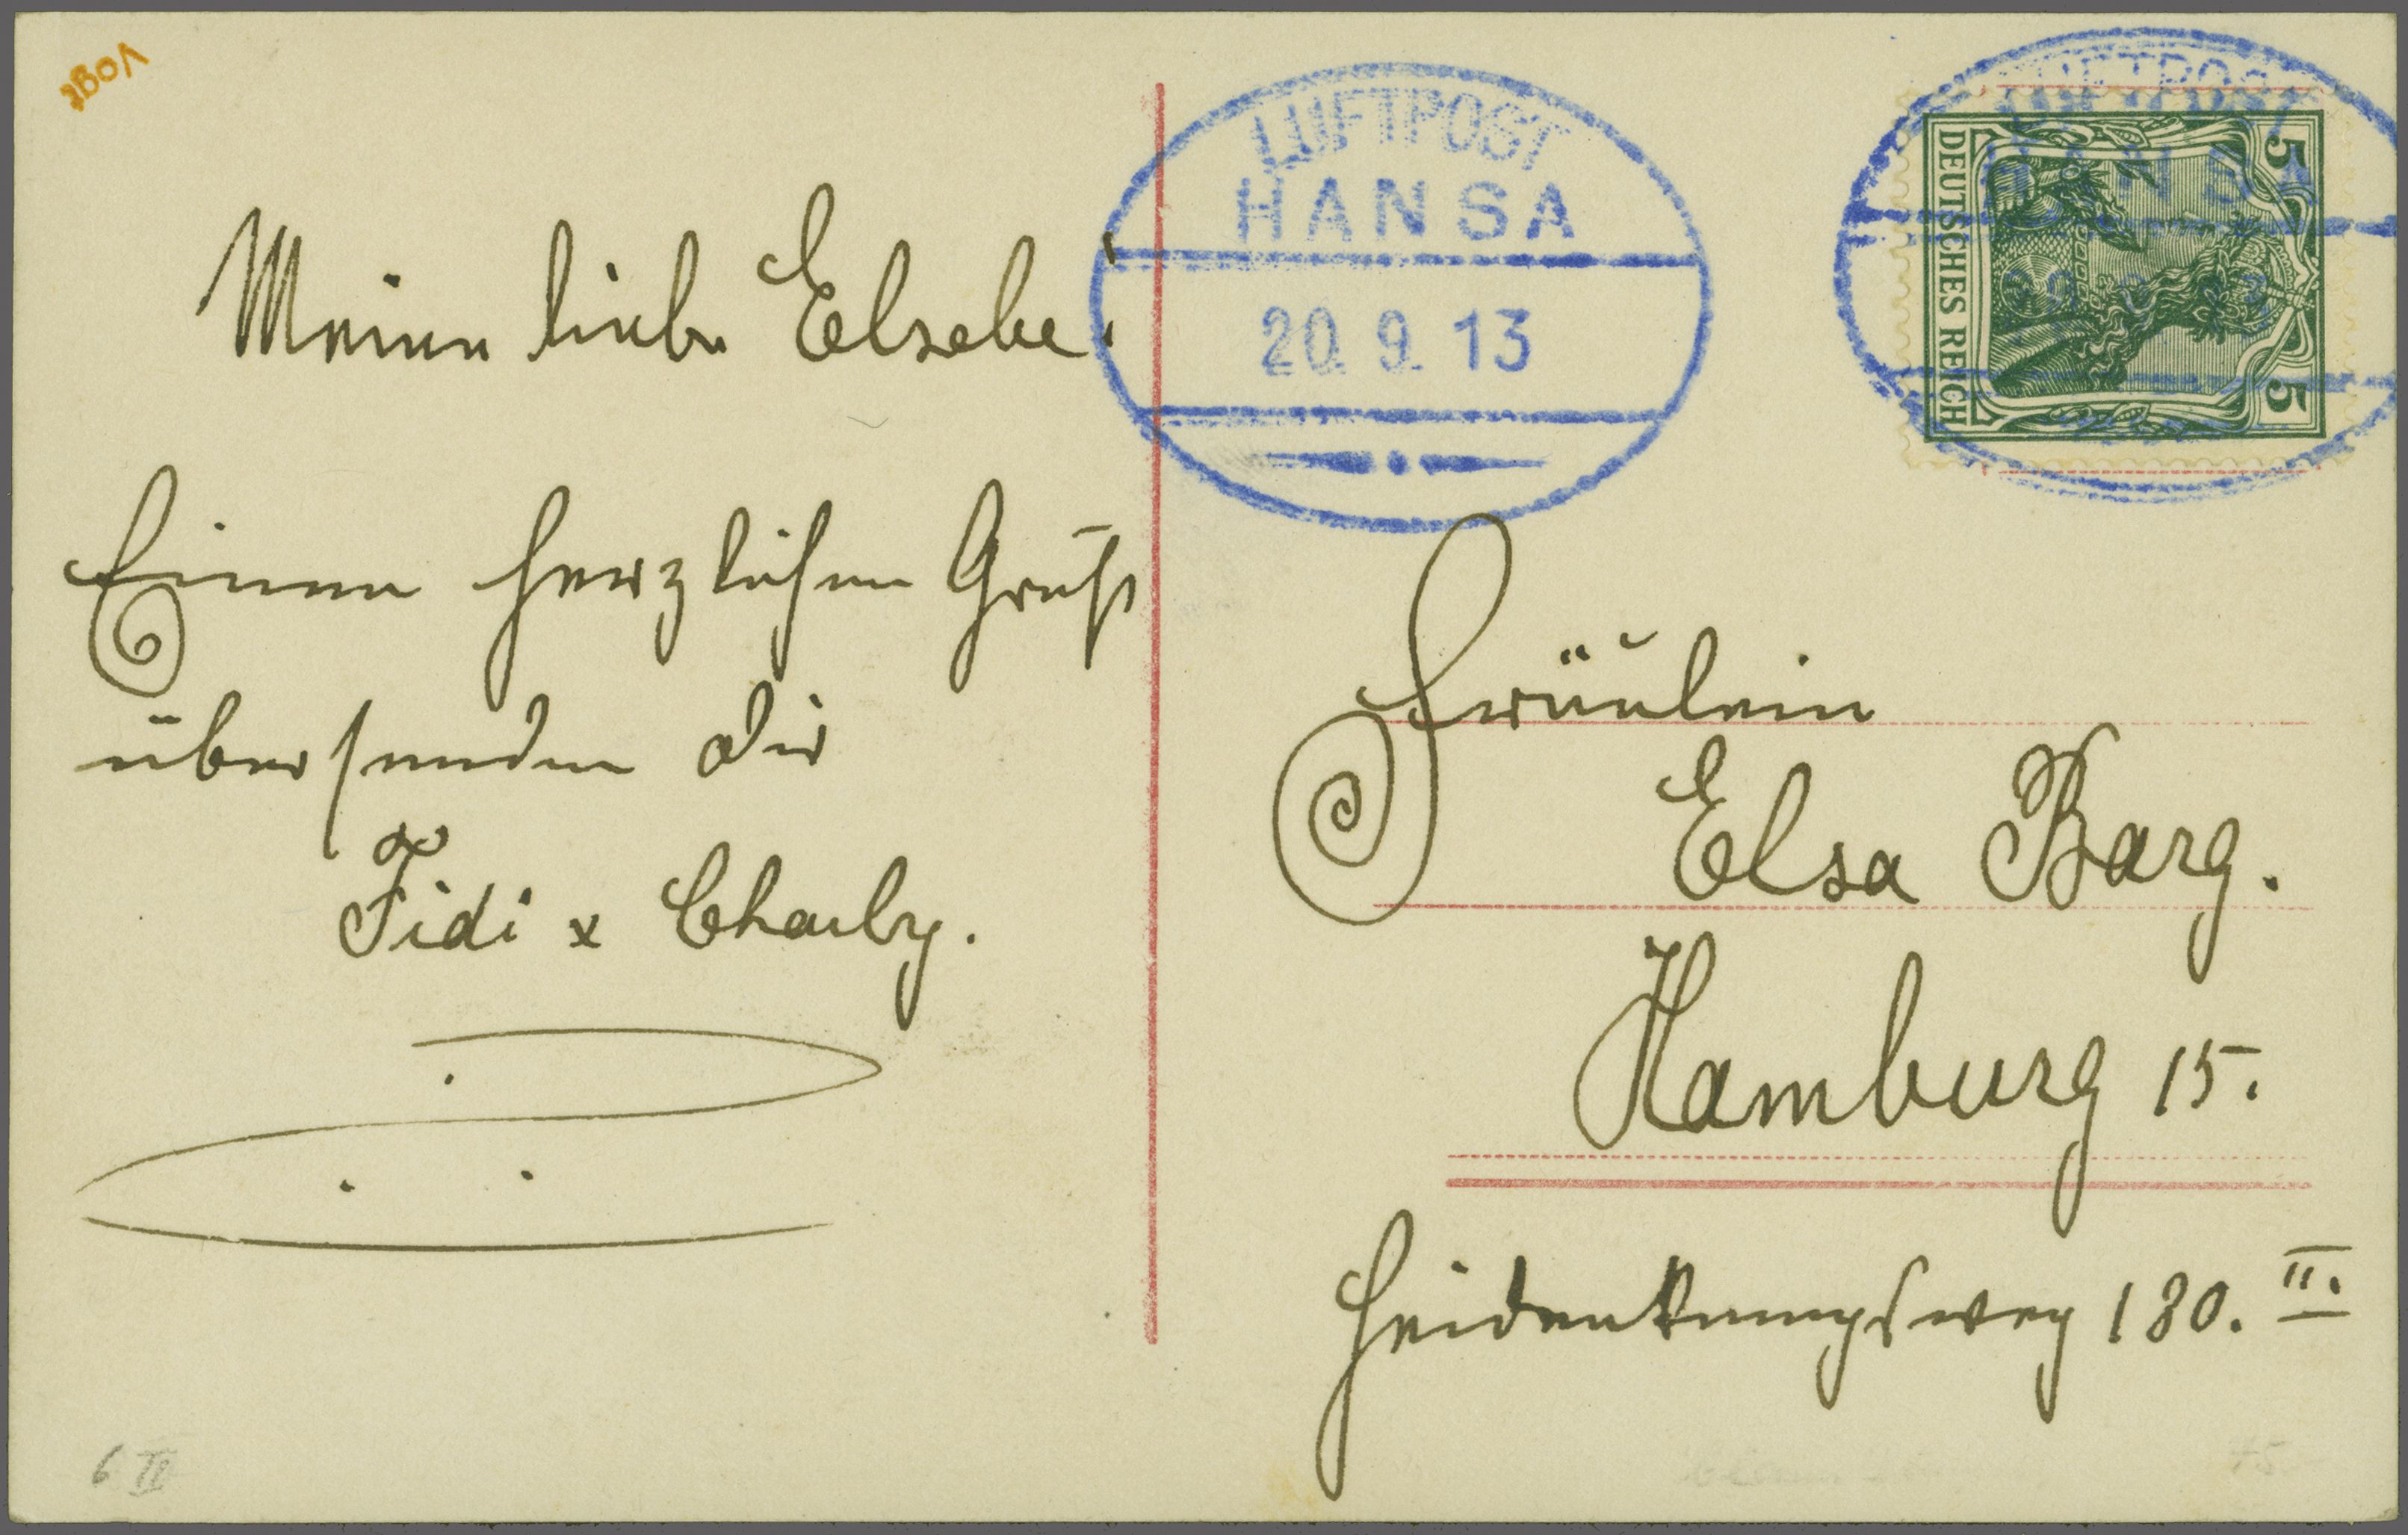 Vogt
Meine liebe Elsebe!
Einen herzlichen Gruß
übersenden dir
Fidi & Charly.
6 II
LUFTPOST
HANSA
20. 9. 13
LUFTPOST
HANSA
DEUTSCHES REICH
5 5
Fräulein
Elsa Barg.
Hamburg 15.
Heidenkampsweg 180. II.